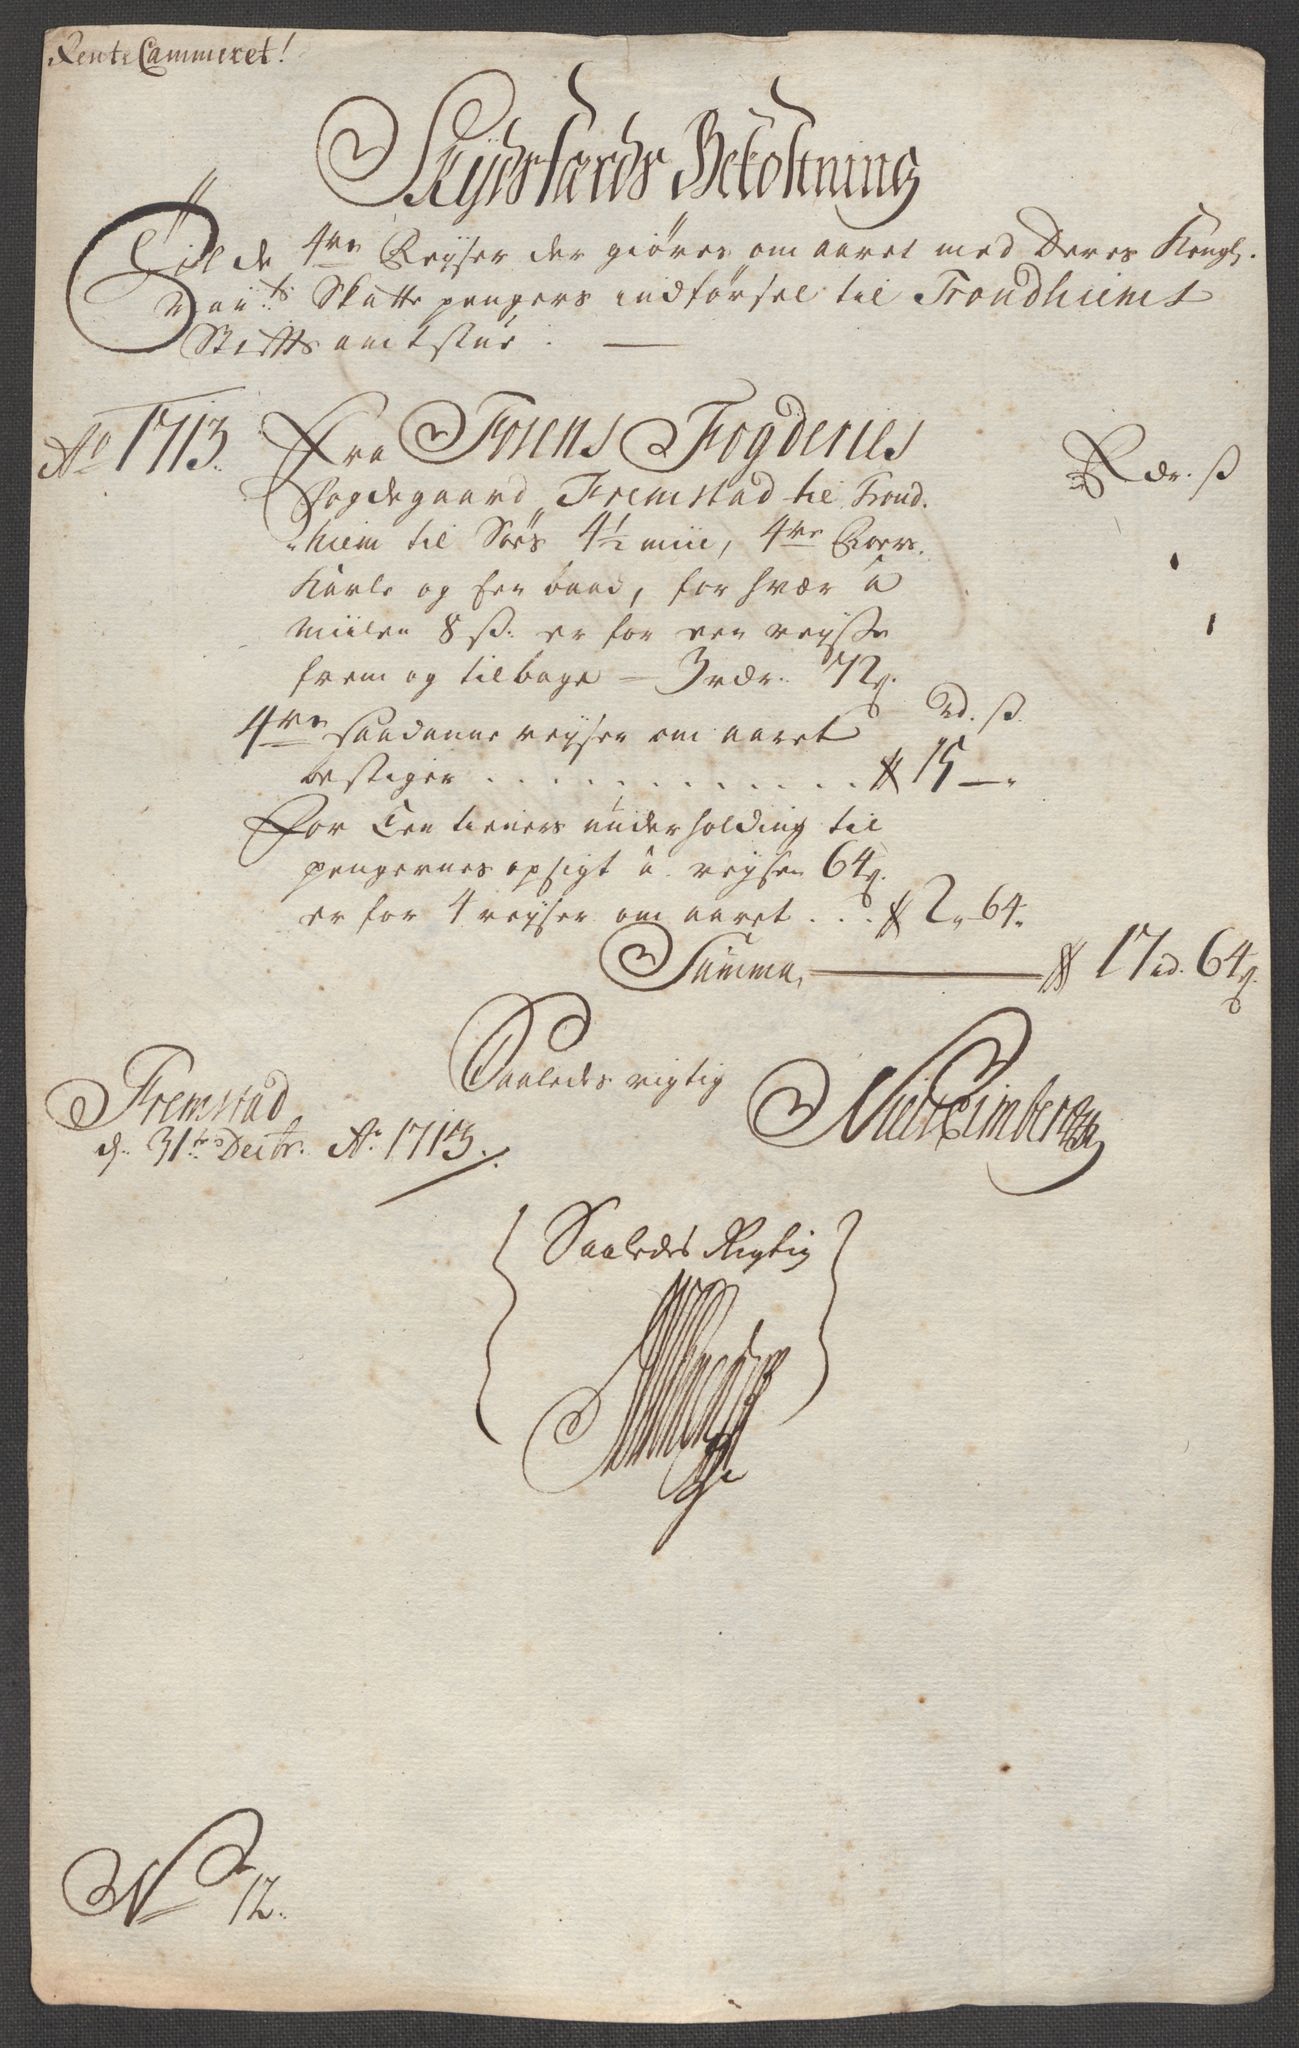 Rente Cammeret!
Skydsfærds Bekostning
Til de 4re Reyser der giøres om aaret med Deres Kongl.
May:ts Skatte pengers indførsel til Trondhiems
Stiftsamtstue.
Ao 1713. Fra Fosens Fogderies Rdr. ß
Fogdegaard, Fremstad til Trond-
hiem til Søes 4½ miil, 4re Roers
Karle og færbaad, for hvær â
Miilen 8 ß. er for een reyse
frem og tilbage — 3 rdr. 72 ß.
4re saadanne reyser om aaret rd. ß.
bestiger . . . . . . . . . . . 15 —
For Een tieners underholding til
pengernes opsigt â reysen 64 ß.
er for 4 reyser om aaret . . . 2 „ 64.
Summa, 17 rd. 64 ß.
Saaledes rigtig
Fremstad
d. 31te Decbr. Ao 1713.
Saaledes Rigtig
No 12.